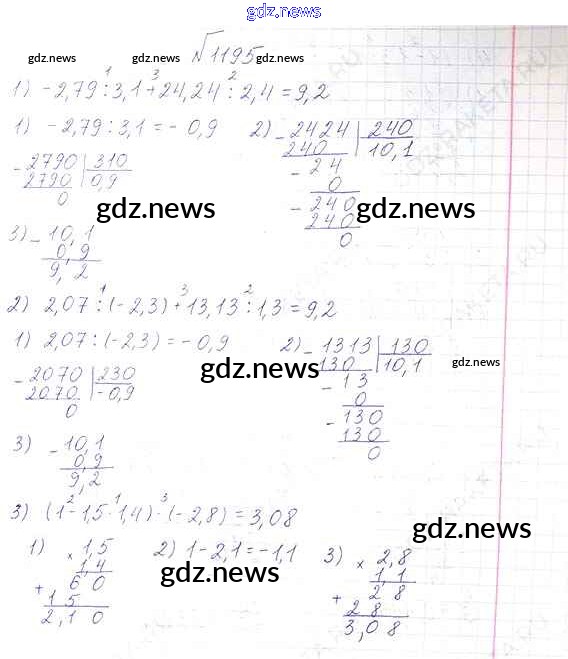 gdz.news
√1195
gdz.news gdz.news gdz.news
1) -2,79 : 3,1 + 24,24 : 2,4 = 9,2
1) -2,79 : 3,1 = -0,9
2790 | 310
2790 | 0,9
0
2) 2424 | 240
240 | 10,1
24
0
240
240
0
gdz.news gdz.news
3) 10,1
0,9
9,2
2) 2,07 : (-2,3) + 13,13 : 1,3 = 9,2
1) 2,07 : (-2,3) = -0,9
2070 | 230
2070 | -0,9
0
2) 1313 | 130
130 | 10,1
13
0
130
130
0
gdz.news gdz.news
3) 10,1
0,9
9,2
3) (1 - 1,5 · 1,4) · (-2,8) = 3,08
gdz.news
1) × 1,5
1,4
+ 60
15
2,10
2) 1 - 2,1 = -1,1
gdz.news
3) × 2,8
1,1
+ 28
28
3,08